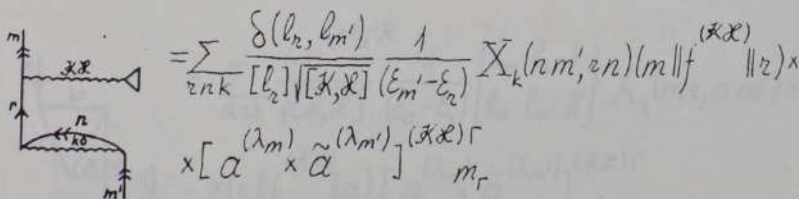 m
𝒦ℋ
r
n
k0
m'
= Σ_{rnk} \frac{δ(l_r, l_{m'})}{[l_r]\sqrt{[𝒦,ℋ]}} \frac{1}{(ε_{m'}-ε_r)} X̄_k(nm',rn)(m‖f^{(𝒦ℋ)}‖r)×
×[a^{(λ_m)} × ã^{(λ_{m'})}]^{(𝒦ℋ)Γ}_{m_Γ}